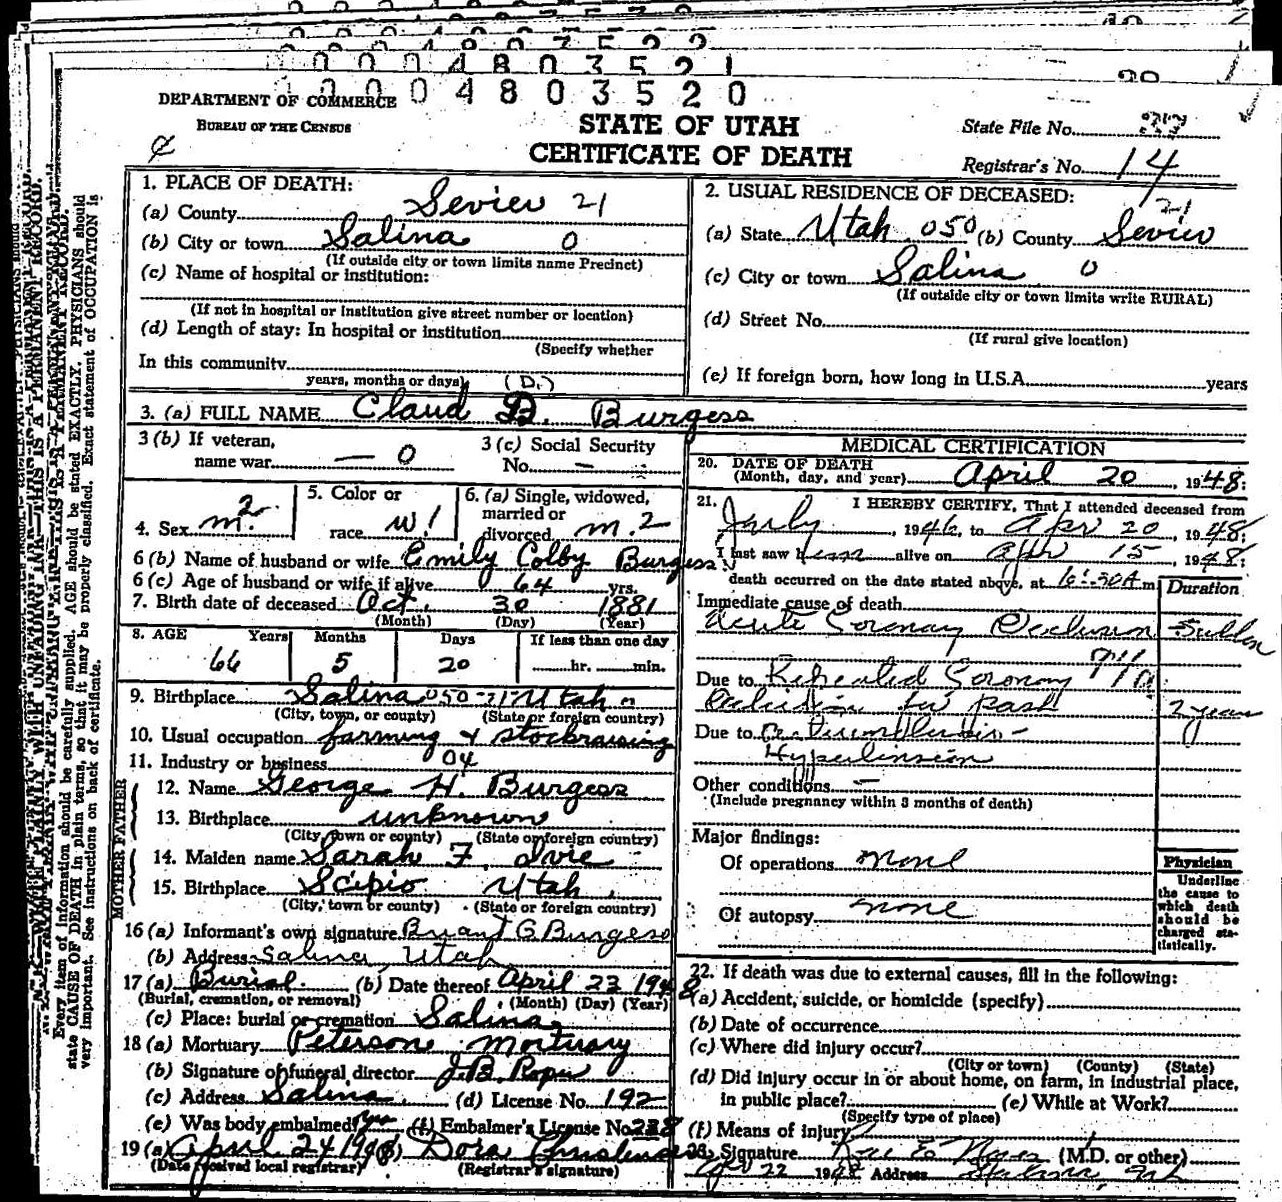 0004803520
DEPARTMENT OF COMMERCE
BUREAU OF THE CENSUS
STATE OF UTAH
CERTIFICATE OF DEATH
State File No.
Registrar's No. 14
1. PLACE OF DEATH:
(a) County Sevier 21
(b) City or town Salina 0
(If outside city or town limits name Precinct)
(c) Name of hospital or institution:
(If not in hospital or institution give street number or location)
(d) Length of stay: In hospital or institution
(Specify whether
In this community
years, months or days) (D.)
2. USUAL RESIDENCE OF DECEASED:
21
(a) State Utah 050 (b) County Sevier
(c) City or town Salina 0
(If outside city or town limits write RURAL)
(d) Street No.
(If rural give location)
(e) If foreign born, how long in U.S.A. years
3. (a) FULL NAME Claud D. Burgess
3 (b) If veteran,
name war — 0
3 (c) Social Security
No. —
4. Sex m. 2
5. Color or
race w 1
6. (a) Single, widowed,
married or
divorced m. 2
6 (b) Name of husband or wife Emily Colby Burgess
6 (c) Age of husband or wife if alive 64 yrs.
7. Birth date of deceased Oct. 30 1881
(Month) (Day) (Year)
8. AGE Years Months Days If less than one day
66 5 20 hr. min.
9. Birthplace Salina 050-21 Utah
(City, town, or county) (State or foreign country)
10. Usual occupation farming & stockraising
11. Industry or business 04
FATHER
12. Name George H. Burgess
13. Birthplace unknown
(City, town or county) (State or foreign country)
MOTHER
14. Maiden name Sarah F. Ivie
15. Birthplace Scipio Utah
(City, town or county) (State or foreign country)
16 (a) Informant's own signature Briant G Burgess
(b) Address Salina, Utah
17 (a) Burial (b) Date thereof April 23 1948
(Burial, cremation, or removal) (Month) (Day) (Year)
(c) Place: burial or cremation Salina
18 (a) Mortuary Peterson Mortuary
(b) Signature of funeral director J.B. Roper
(c) Address Salina (d) License No. 192
(e) Was body embalmed? yes (f) Embalmer's License No. 228
19 (a) April 24 1948 (b) Dora
(Date received local registrar) (Registrar's signature)
MEDICAL CERTIFICATION
20. DATE OF DEATH
(Month, day, and year) April 20, 1948:
21. I HEREBY CERTIFY, That I attended deceased from
July, 1946, to Apr 20, 1948;
I last saw him alive on Apr 15, 1948;
death occurred on the date stated above, at 6:30A m
Duration
Immediate cause of death
Acute Coronary Occlusion Sudden
Due to Repeated Coronary
Occlusion for past 2 years
Due to
Hypertension
Other conditions —
(Include pregnancy within 3 months of death)
Major findings:
Of operations none
Of autopsy none
Physician
Underline
the cause to
which death
should be
charged sta-
tistically.
22. If death was due to external causes, fill in the following:
(a) Accident, suicide, or homicide (specify)
(b) Date of occurrence
(c) Where did injury occur?
(City or town) (County) (State)
(d) Did injury occur in or about home, on farm, in industrial place,
in public place? (e) While at Work?
(Specify type of place)
(f) Means of injury
23. Signature Rae E Noyes (M.D. or other)
Apr 22 1948 Address Salina, Ut
WRITE PLAINLY WITH UNFADING INK—THIS IS A PERMANENT RECORD.
Every item of information should be carefully supplied. AGE should be stated EXACTLY. PHYSICIANS should
state CAUSE OF DEATH in plain terms, so that it may be properly classified. Exact statement of OCCUPATION is
very important. See instructions on back of certificate.